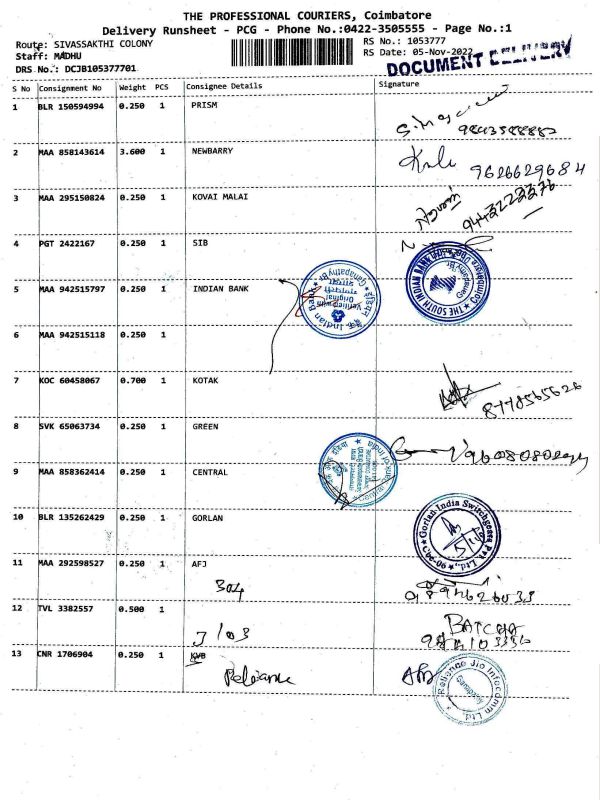 THE PROFESSIONAL COURIERS, Coimbatore
Delivery Runsheet - PCG - Phone No.:0422-3505555 - Page No.:1
Route: SIVASSAKTHI COLONY
RS No.: 1053777
Staff: MADHU
RS Date: 05-Nov-2022
DRS No.: DCJB105377701
DOCUMENT DELIVERY
S No Consignment No Weight PCS Consignee Details Signature
1 BLR 150594994 0.250 1 PRISM
9843588882
2 MAA 858143614 3.600 1 NEWBARRY
9626629684
3 MAA 295150824 0.250 1 KOVAI MALAI
9443222276
4 PGT 2422167 0.250 1 SIB
THE SOUTH INDIAN BANK
5 MAA 942515797 0.250 1 INDIAN BANK
Indian Bank
Verified with Original
6 MAA 942515118 0.250 1
7 KOC 60458067 0.700 1 KOTAK
8778565626
8 SVK 65063734 0.250 1 GREEN
9 MAA 858362414 0.250 1 CENTRAL
10 BLR 135262429 0.250 1 GORLAN
Gorlan India Switchgears Pvt. Ltd., Cbe-06
11 MAA 292598527 0.250 1 AFJ
304
12 TVL 3382557 0.500 1
J/103
BATCHA
13 CNR 1706904 0.250 1 KVB
Reliance
Reliance Jio Infocomm Ltd.
Ganapathy